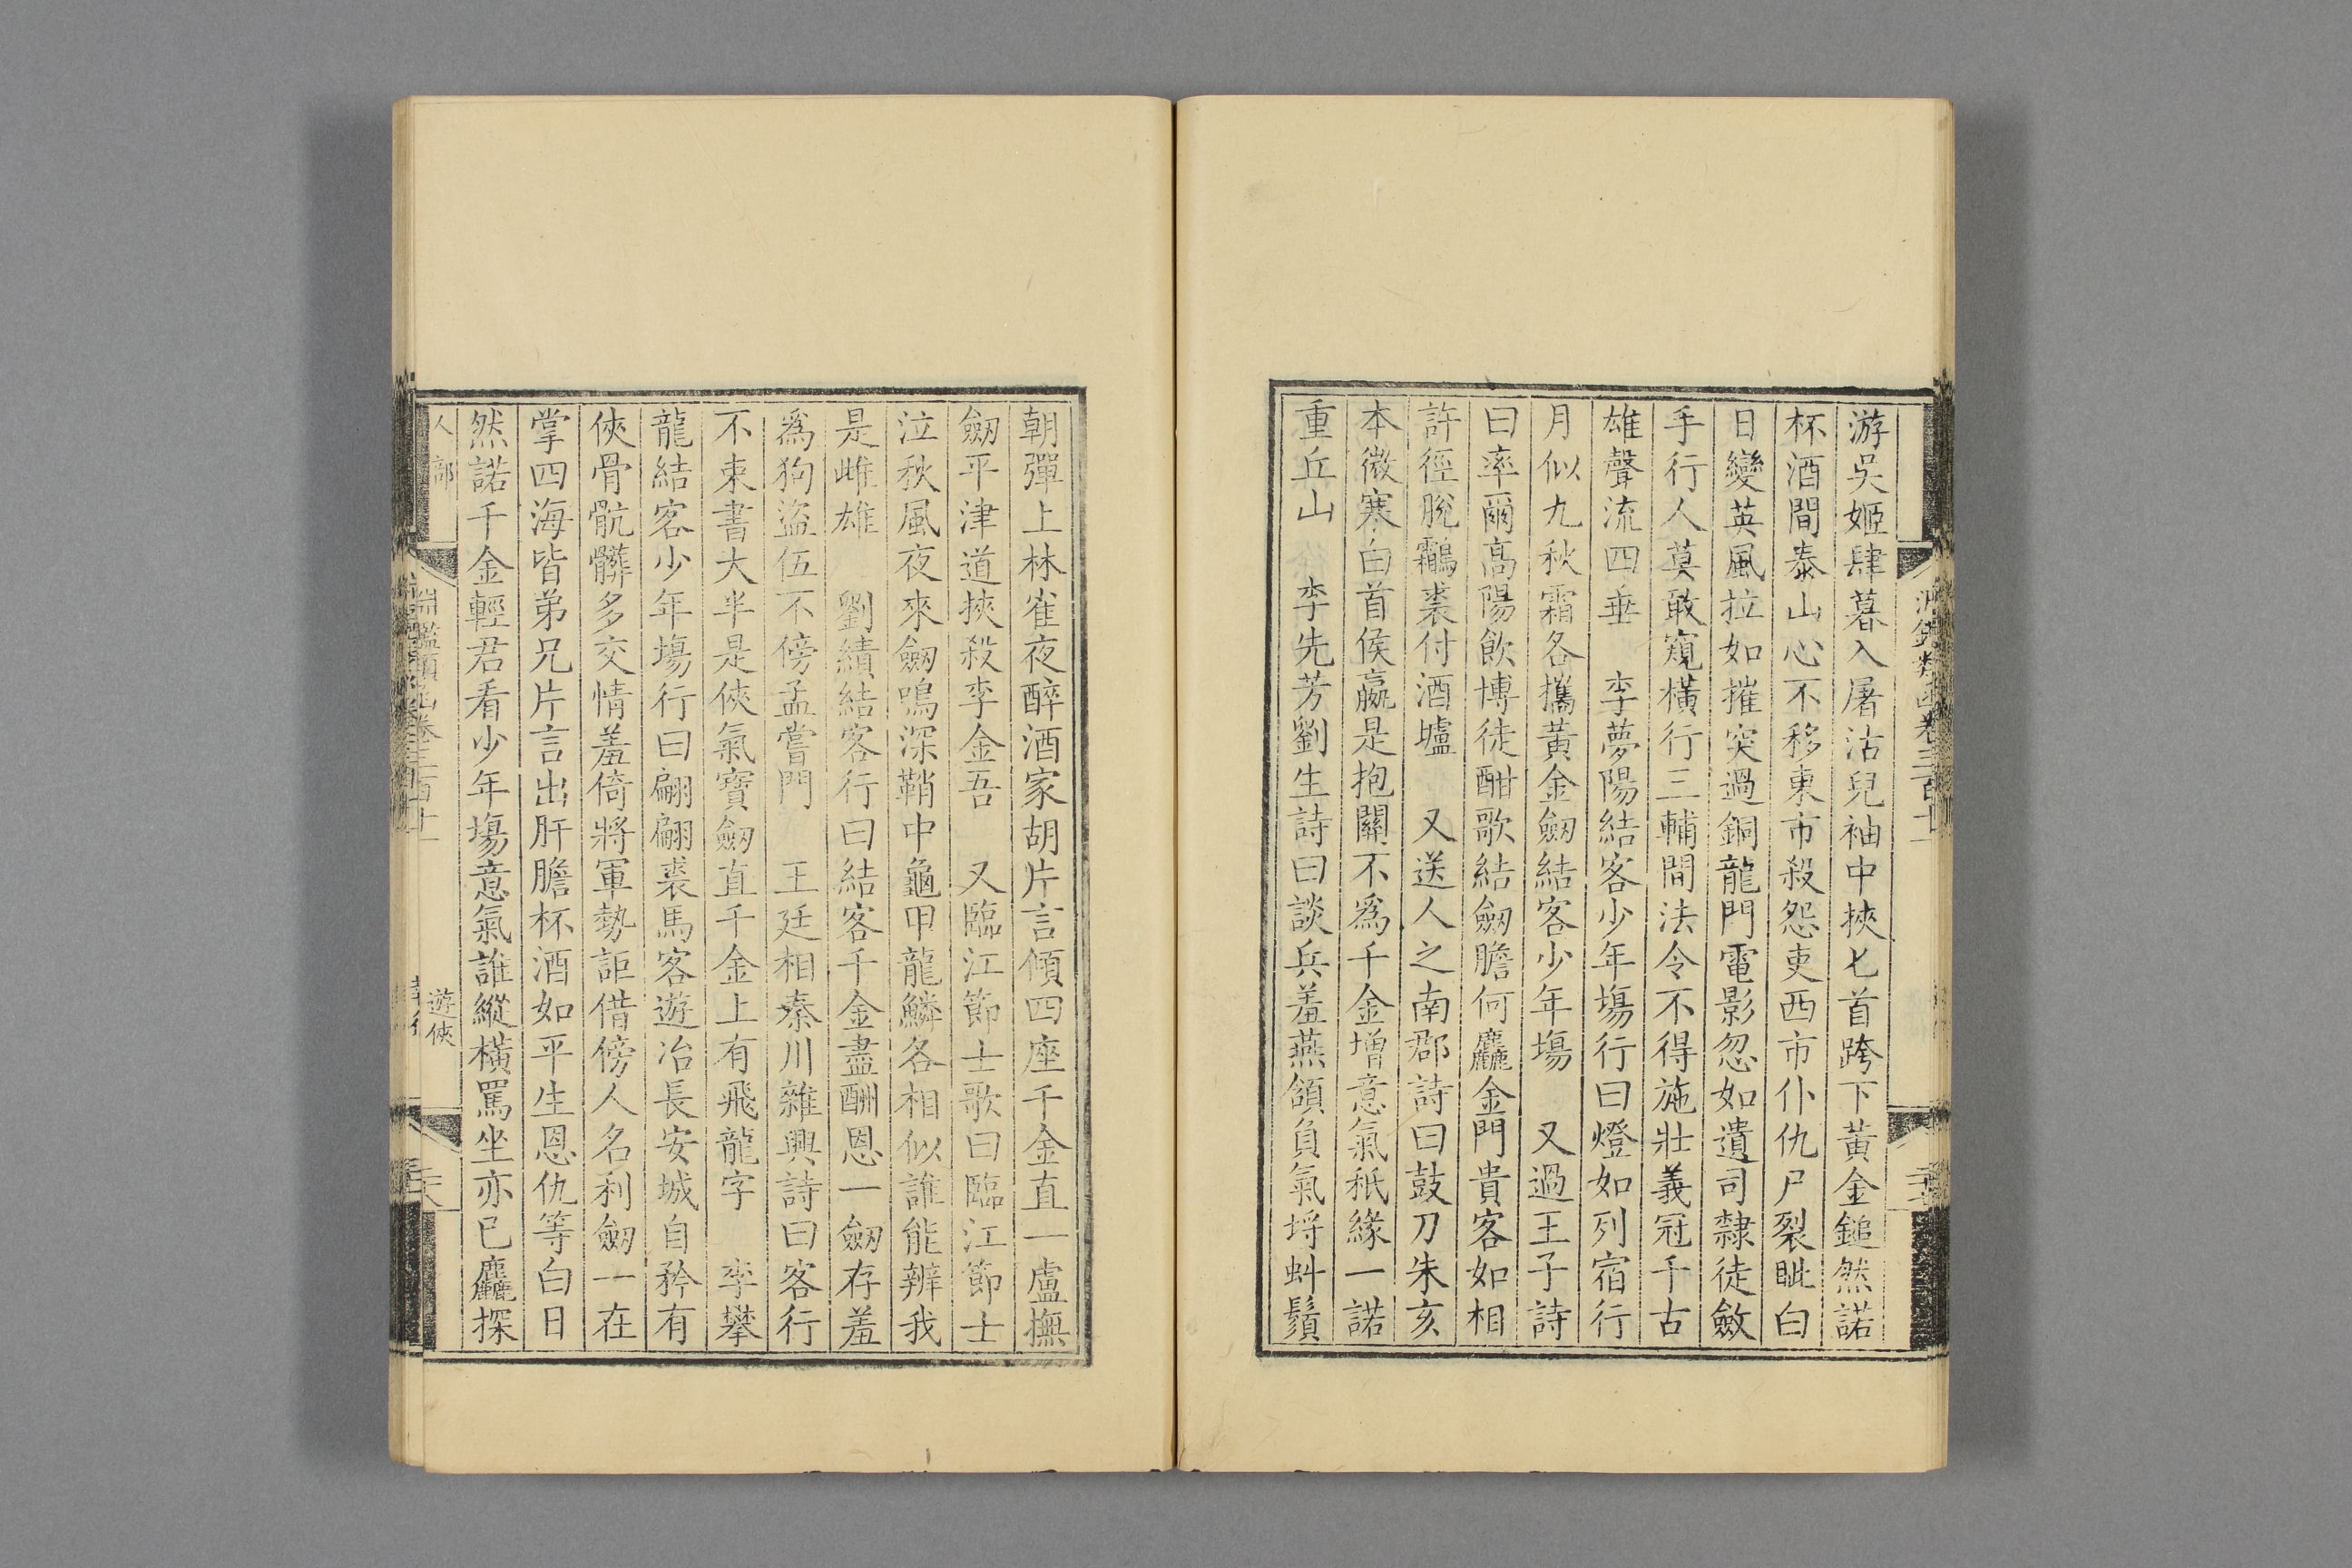 游吳姬肆暮入屠沽兒袖中挾匕首跨下黃金鎚然諾
杯酒間泰山心不移東市殺怨吏西市仆仇尸裂眦白
日變英風拉如摧突過銅龍門電影忽如遺司隸徒斂
手行人莫敢窺橫行三輔間法令不得施壯義冠千古
雄聲流四垂　李夢陽結客少年塲行曰燈如列宿行
月似九秋霜各攜黃金劒結客少年塲　又過王子詩
曰率爾高陽飲博徒酣歌結劒膽何麤金門貴客如相
許徑脫鸘裘付酒壚　又送人之南郡詩曰鼓刀朱亥
本微寒白首侯嬴是抱關不爲千金增意氣秪緣一諾
重丘山　李先芳劉生詩曰談兵羞燕頷負氣埒虯鬚
朝彈上林雀夜醉酒家胡片言傾四座千金直一盧撫
劒平津道挾殺李金吾　又臨江節士歌曰臨江節士
泣秋風夜來劒鳴深鞘中龜甲龍鱗各相似誰能辨我
是雌雄　劉績結客行曰結客千金盡酬恩一劒存羞
爲狗盜伍不傍孟嘗門　王廷相秦川雜興詩曰客行
不束書大半是俠氣寶劒直千金上有飛龍字　李攀
龍結客少年塲行曰翩翩裘馬客遊冶長安城自矜有
俠骨骯髒多交情羞倚將軍勢詎借傍人名利劒一在
掌四海皆弟兄片言出肝膽杯酒如平生恩仇等白日
然諾千金輕君看少年塲意氣誰縱橫罵坐亦已麤探
人部
淵鑑類函卷三百十一
遊俠